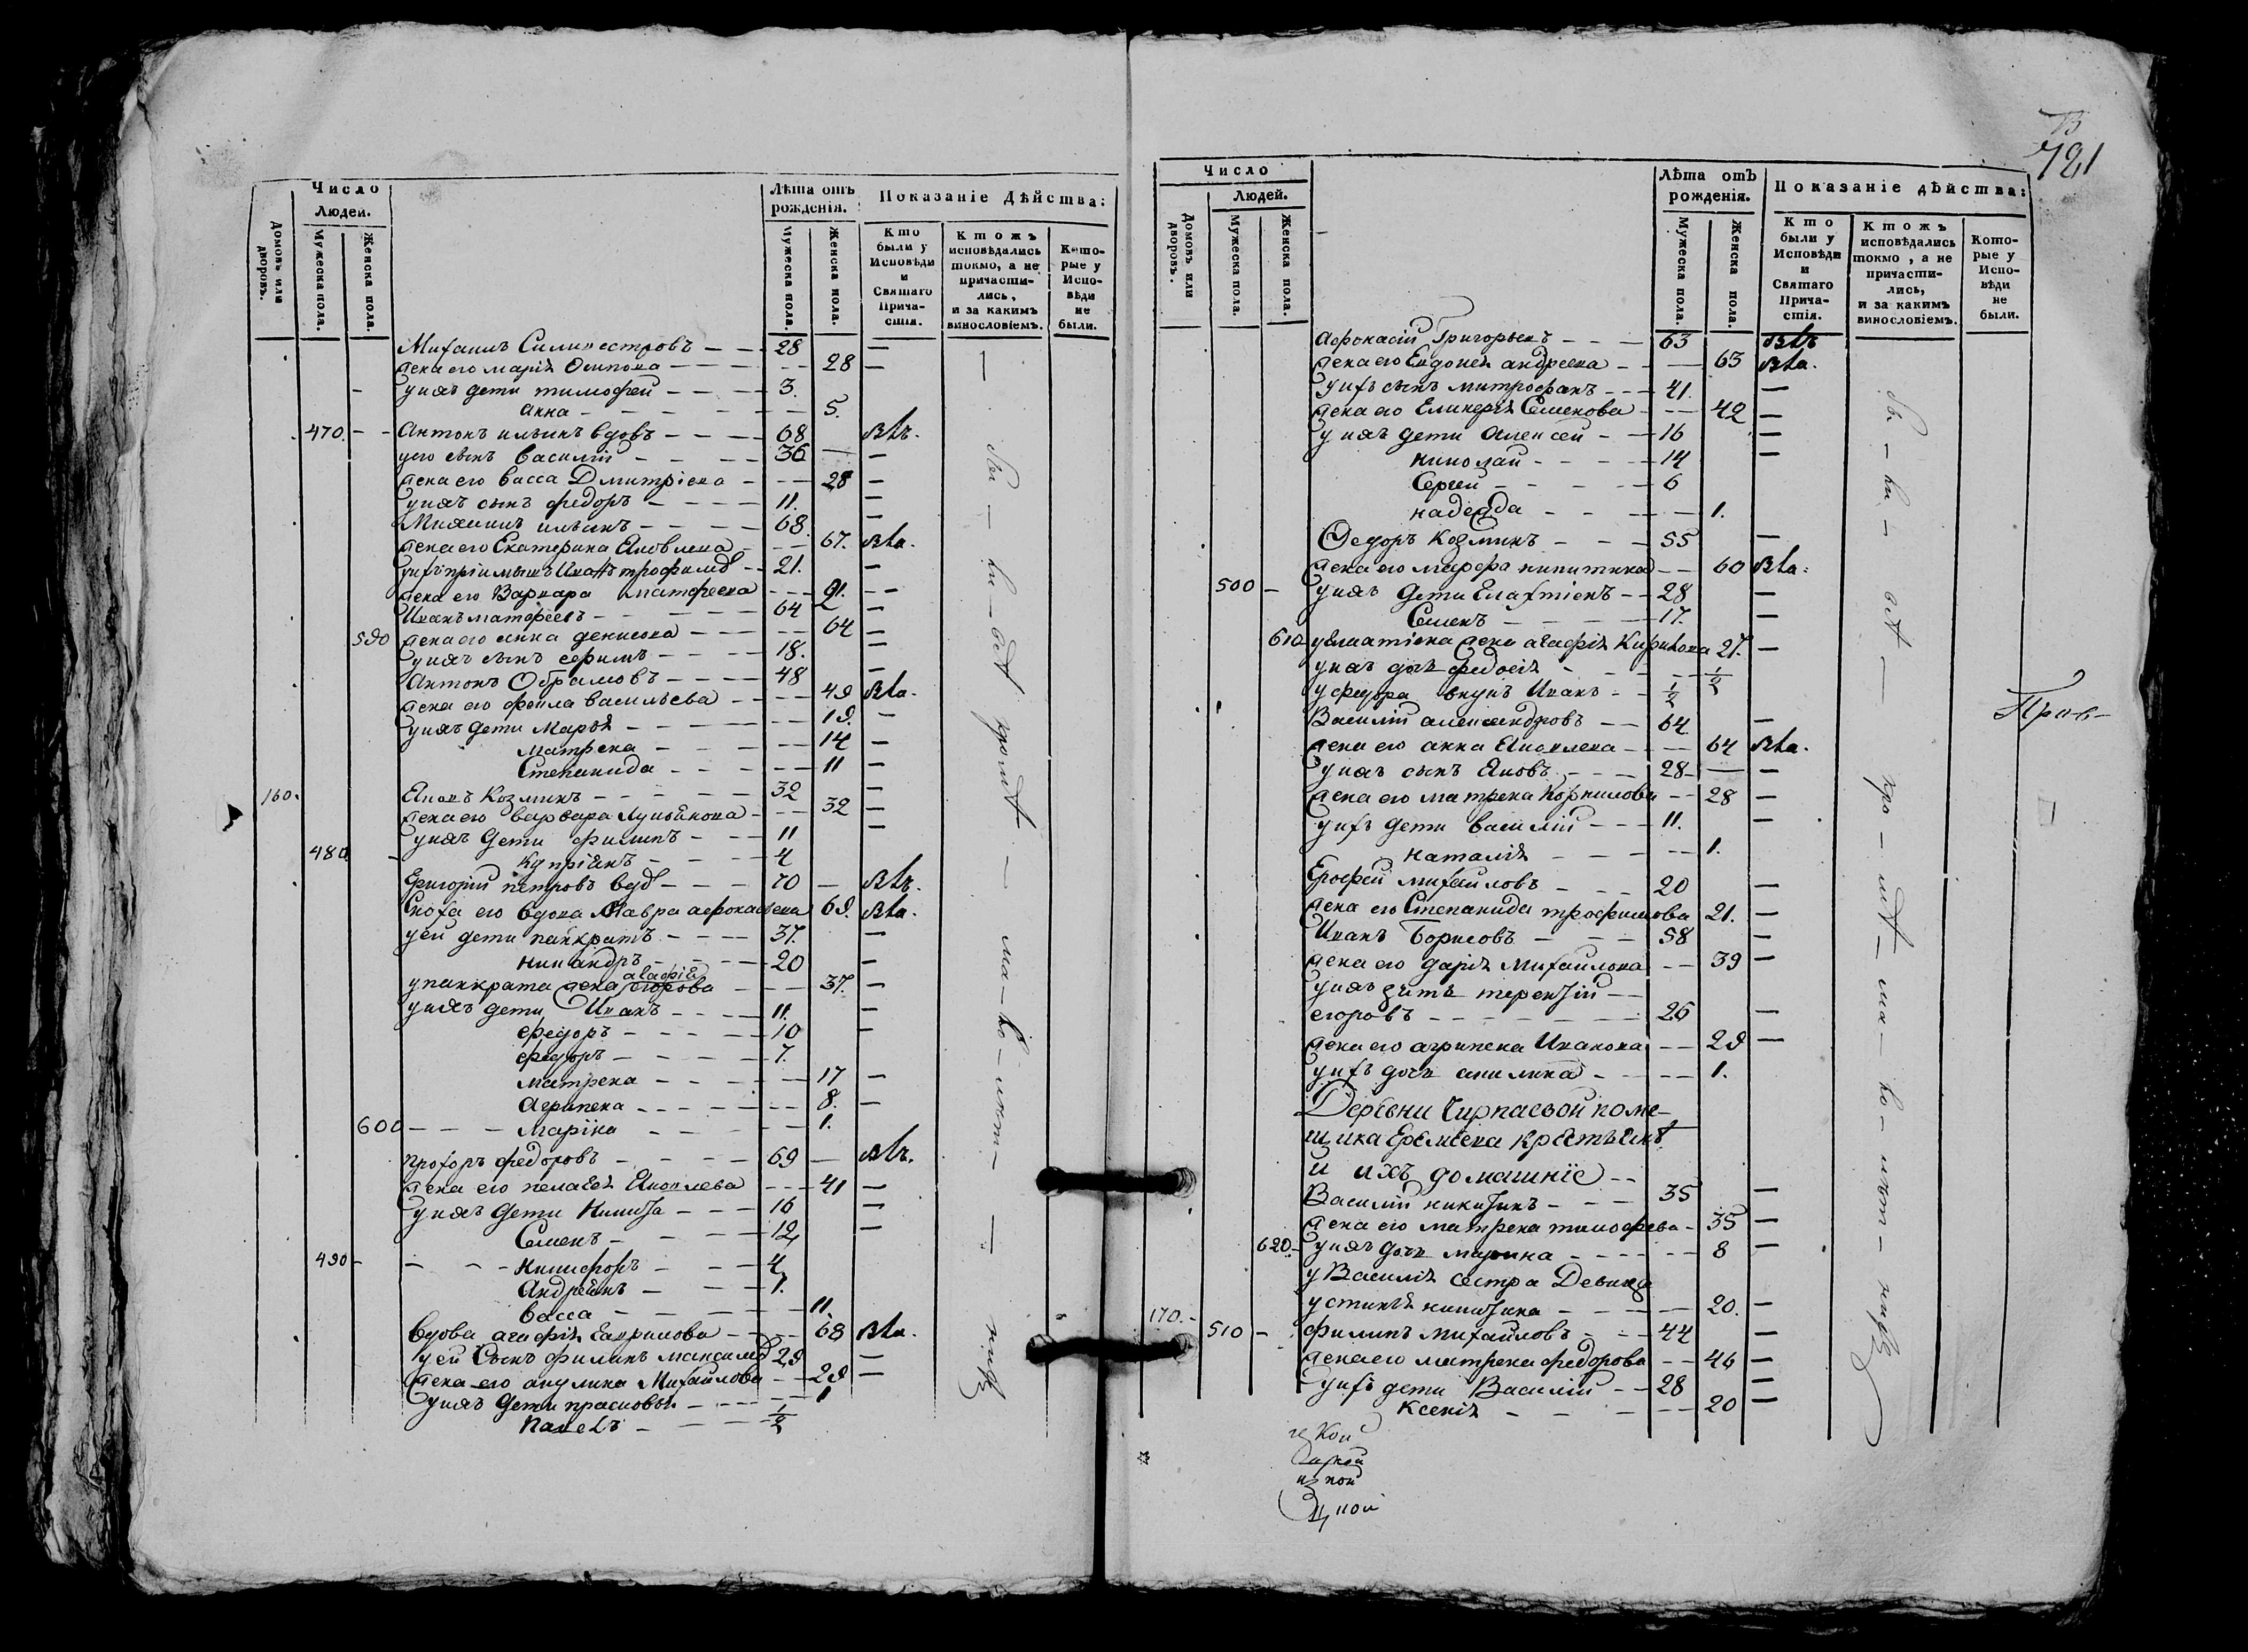 Число
Людей.
Домовъ или дворовъ.
Мужеска пола.
Женска пола.
Лѣта отъ рожденія.
Мужеска пола.
Женска пола.
Показаніе Дѣйства:
Кто были у Исповѣди и Святаго Причастія.
Ктожъ исповѣдались токмо, а не причастились, и за какимъ винословіемъ.
Которые у Исповѣди не были.
Михаилъ Силивестровъ — — 28 —
жена его марія Осипова — — 28 —
у ихъ дети тимофей — — 3.
анна — — 5.
470. — — Антонъ ильинъ вдовъ — — 68
уего сынъ василій — — 36 — —
жена его васса Дмитріева — — 28 —
у ихъ сынъ федоръ — — 11. —
Михаилъ ильинъ — — 68. —
жена его Екатерина Яковлева — — 67.
21. —
жена его Варвара матфеева — —
Иванъ матфеевъ — — 64 —
590 жена его анна денисова — — 64 —
у ихъ сынъ ефимъ — — 18. —
Антонъ Обрамовъ — — 48 —
жена его фекла васильева — — 49
у ихъ дети Марья — — 19. —
матрена — — 14 —
Степанида — — 11 —
160. Яковъ Козминъ — — 32 —
жена его варвара Лукьянова — — 32 —
у ихъ дети филипъ — — 11 —
480 — купріянъ — — 4
Григорий петровъ вдо — — 70 —
Сноха его вдова Мавра афонасьева 69.
уей дети панкратъ — — 37. —
никандръ — — 20 —
агафія
у панкрата жена егорова — — 37. —
у ихъ дети Иванъ — — 11. —
федоръ — — 10 —
федоръ — — 7.
матрена — — 17 —
Агрипена — — 8. —
600 — — — Марина — — 1.
прохоръ федоровъ — — 69 —
жена его пелагея Яковлева — — 41 —
у ихъ дети Никита — — 16 —
Семенъ — — 12 —
490 — — — никифоръ — — 4
Андреянъ — — 1.
васса — — 11.
вдова агафія Гаврилова — — 68
у ей Сынъ филипъ 29 —
жена его акулина Михайлова — — 29 —
у ихъ дети прасковья — — 1
павелъ — — 1/2
721
Число
Людей.
Домовъ или дворовъ.
Мужеска пола.
Женска пола.
Лѣта отъ рожденія.
Мужеска пола.
Женска пола.
Показаніе дѣйства:
Кто были у Исповѣди и Святаго Причастія.
Ктожъ исповѣдались токмо, а не причастились, и за какимъ винословіемъ.
Которые у Исповѣди не были.
Афонасій Григорьевъ — — 63
жена его Евдокея андреева — — 63
у ихъ сынъ митрофанъ — — 41. —
жена его Гликерія Семенова — — 42 —
у ихъ дети Алексей — — 16 —
николай — — 14 —
Сергей — — 6
надежда — — 1.
Федоръ Козминъ — — 55 —
жена его марфа никитина — — 60
500 — у ихъ дети Евлахтіенъ — — 28 —
Семенъ — — 17. —
610 жена агафія 21. —
у ихъ дочь федосія — — 1/2
у федора внукъ Иванъ — — 1/2
Василій александровъ — — 64 —
жена его анна Яковлева — — 64
у ихъ сынъ Яковъ — — 28 — —
жена его матрена Корнилова — — 28 —
у ихъ дети василій — — 11. —
наталія — — 1.
Ерофей михайловъ — — 20 —
жена его Степанида трофимова 21. —
Иванъ Борисовъ — — 58 —
жена его дарія Михайлова — — 39 —
у ихъ зять терентій — —
егоровъ — — 26 —
жена его агрипена Иванова — — 29 —
у ихъ дочь акилина — — 1.
Деревни Чирпаевой поме-
щика Еремеева крестьяне
и ихъ домашніе — —
Василій никитинъ — — 35 —
жена его матрена тимофеева — 35 —
620. — у ихъ дочь марина — — 8 —
у Василія сестра Девица
устинья никитина — — 20. —
170. — 510 — филипъ михайловъ — — 44 —
жена его матрена федорова — — 46 —
у ихъ дети Василій — — 28 —
Ксенія — — 20 —